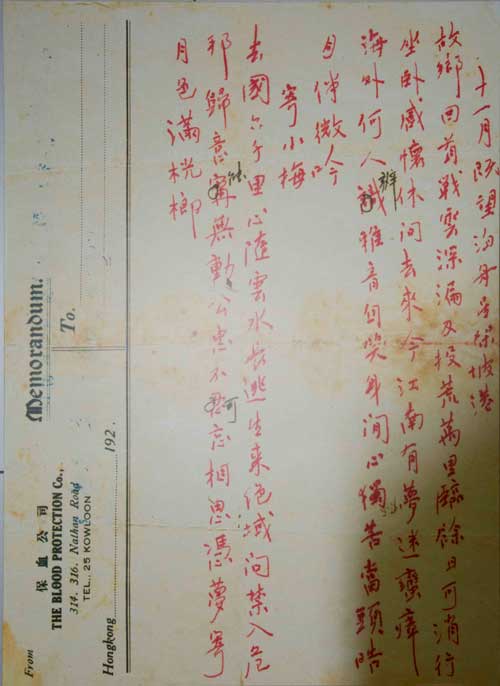 十一月既望泊舟星架坡港
故鄉回首戰雲深漏夜投荒萬里臨餘日可消行
坐卧感懷休問去來今江南有夢迷蠻瘴
海外何人識雅音自笑身閒心獨苦當頭皓
辨
月伴微吟
寄小梅
去國六千里心隨雲水長逃生來絕域問禁入危
邦歸意寧無動公忠不忍忘相思憑夢寄
可
月色滿桄榔
Memorandum.
From
保血公司
THE BLOOD PROTECTION Co.,
314. 316. Nathan Road
TEL. 25 KOWLOON
To.
Hongkong 192 .